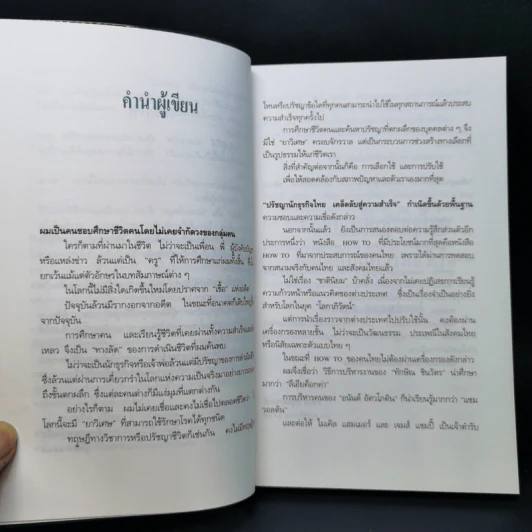 คำนำผู้เขียน
ผมเป็นคนชอบศึกษาชีวิตคนโดยไม่เคยจำกัดวงของกลุ่มคน
ใครก็ตามที่ผ่านมาในชีวิต ไม่ว่าจะเป็นเพื่อน พี่ ผู้บังคับบัญชา
หรือแหล่งข่าว ล้วนแต่เป็น "ครู" ที่ให้การศึกษาแก่ผมทั้งสิ้น
ยกเว้นแม้แต่ตัวอักษรในบทสัมภาษณ์ต่าง ๆ
ในโลกนี้ไม่มีสิ่งใดเกิดขึ้นใหม่โดยปราศจาก "เชื้อ" แต่อดีต
ปัจจุบันล้วนมีรากงอกจากอดีต ในขณะที่อนาคตก็เติบใหญ่
จากปัจจุบัน
การศึกษาคน และเรียนรู้ชีวิตที่เคยผ่านทั้งความสำเร็จและ
เหลว จึงเป็น "ทางลัด" ของการดำเนินชีวิตที่ผมค้นพบ
ไม่ว่าจะเป็นนักธุรกิจหรือเจ้าพ่อล้วนแต่มีปรัชญาของการดำเนิน
ซึ่งล้วนแต่ผ่านการเคี่ยวกรำในโลกแห่งความเป็นจริงมาอย่าง
ถึงขั้นตกผลึก ซึ่งแต่ละคนต่างก็มีแง่มุมที่แตกต่างกัน
อย่างไรก็ตาม ผมไม่เคยเชื่อและคงไม่เชื่อไปตลอดชีวิตว่า
โลกนี้จะมี "ยาวิเศษ" ที่สามารถใช้รักษาโรคได้ทุกชนิด
ทฤษฎีทางวิชาการหรือปรัชญาชีวิตก็เช่นกัน คงไม่มี
ไหนหรือปรัชญาข้อใดที่ทุกคนสามารถนำไปใช้ในทุกสถานการณ์แล้วประสบ
ความสำเร็จทุกครั้งไป
การศึกษาชีวิตคนและค้นหาปรัชญาที่ตกผลึกของบุคคลต่าง ๆ จึง
มิใช่ "ยาวิเศษ" ครอบจักรวาล แต่เป็นกระบวนการช่วงสร้างทางเลือกที่
เป็นรูปธรรมให้แก่ชีวิตเรา
สิ่งที่สำคัญต่อจากนั้นก็คือ การเลือกใช้ และการปรับใช้
เพื่อให้สอดคล้องกับสภาพปัญหาและตัวเราเองมากที่สุด
"ปรัชญานักธุรกิจไทย เคล็ดลับสู่ความสำเร็จ" กำเนิดขึ้นด้วยพื้นฐาน
ความชอบและความเชื่อดังกล่าว
นอกจากนั้นแล้ว ยังเป็นการสนองตอบต่อความรู้สึกส่วนตัวอีก
ประการหนึ่งว่า หนังสือ HOW TO ที่มีประโยชน์มากที่สุดคือหนังสือ
HOW TO ที่มาจากประสบการณ์ของคนไทย เพราะได้ผ่านการทดสอบ
จากสนามจริงกับคนไทย และสังคมไทยแล้ว
ไม่ใช่เรื่อง "ชาตินิยม" บ้าคลั่ง เนื่องจากไม่เคยปฏิเสธการเรียนรู้
ความก้าวหน้าหรือแนวคิดของต่างประเทศ ซึ่งเป็นเรื่องจำเป็นอย่างยิ่ง
สำหรับโลกในยุค "โลกาภิวัตน์"
แต่การนำเรื่องราวจากต่างประเทศไปปรับใช้นั้น คงต้องผ่าน
เครื่องกรองหลายชั้น ไม่ว่าจะเป็นวัฒนธรรม ประเพณีในสังคมไทย
หรือนิสัยเฉพาะตัวแบบไทย ๆ
ในขณะที่ HOW TO ของคนไทยไม่ต้องผ่านเครื่องกรองดังกล่าว
ผมจึงเชื่อว่า วิธีการบริหารงานของ "ทักษิณ ชินวัตร" น่าศึกษา
มากกว่า "ลีเอียค็อกค่า"
การบริหารคนของ "อนันต์ อัศวโภคิน" ก็น่าเรียนรู้มากกว่า "แซม
วอลตัน"
และต่อให้ ไมเคิล แฮมเมอร์ และ เจมส์ แชมปี้ เป็นเจ้าตำรับ